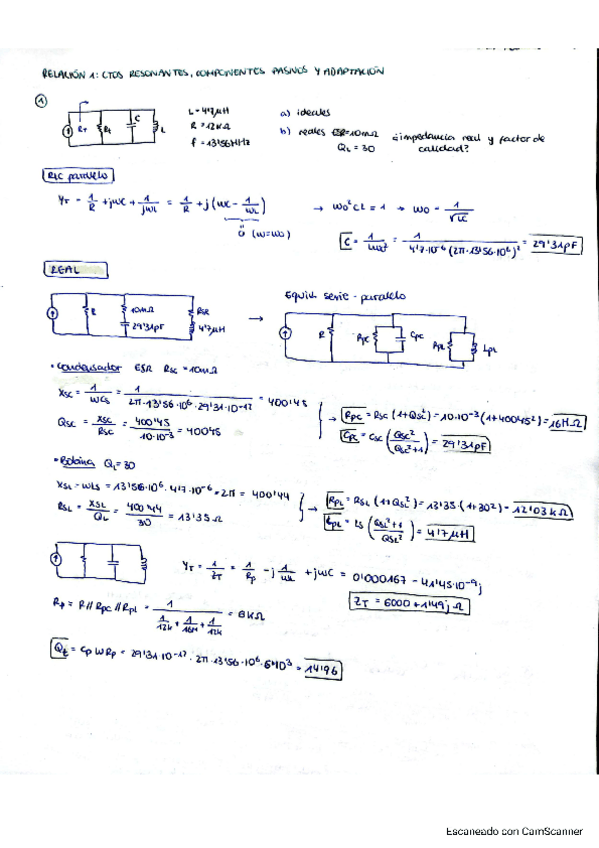 RELACIÓN 1: CTOS RESONANTES, COMPONENTES PASIVOS Y ADAPTACIÓN
1
L = 4'7μH
R = 12KΩ
f = 13'56MHz
a) ideales
b) reales ESR=10mΩ
QL = 30
¿impedancia real y factor de calidad?
RT
Rt
C
L
RLC paralelo
YT = 1/R + jωC + 1/jωL = 1/R + j(ωC - 1/ωL)
0 (ω=ω0)
→ ω0²CL = 1 → ω0 = 1/√LC
C = 1/ω0²L = 1/(4'7·10⁻⁶ (2π·13'56·10⁶)²) = 29'31pF
REAL
R
10mΩ
29'31pF
RSL
4'7μH
→
Equiv. serie-paralelo
R
RPC
CPC
RPL
LPL
• Condensador ESR RSC = 10mΩ
XSC = 1/ωCS = 1/(2π·13'56·10⁶·29'31·10⁻¹²) = 400'45
QSC = XSC/RSC = 400'45/10·10⁻³ = 40045
→ RPC = RSC (1+QSC²) = 10·10⁻³(1+40045²) = 16MΩ
CPC = CSC (QSC²/(QSC²+1)) = 29'31pF
• Bobina QL=30
XSL = ωLS = 13'56·10⁶·4'7·10⁻⁶·2π = 400'44
RSL = XSL/QL = 400'44/30 = 13'35Ω
→ RPL = RSL (1+QSL²) = 13'35(1+30²) = 12'03KΩ
LPL = LS (QSL²+1/QSL²) = 4'7μH
YT = 1/ZT = 1/RP - j 1/ωL + jωC = 0'000167 - 41'45·10⁻⁹j
RP = R//RPC//RPL = 1/(1/12k + 1/16M + 1/12k) = 6KΩ
ZT = 6000 + 1'49j Ω
Qt = CP ω RP = 29'31·10⁻¹²·2π·13'56·10⁶·6·10³ = 14'96
Escaneado con CamScanner